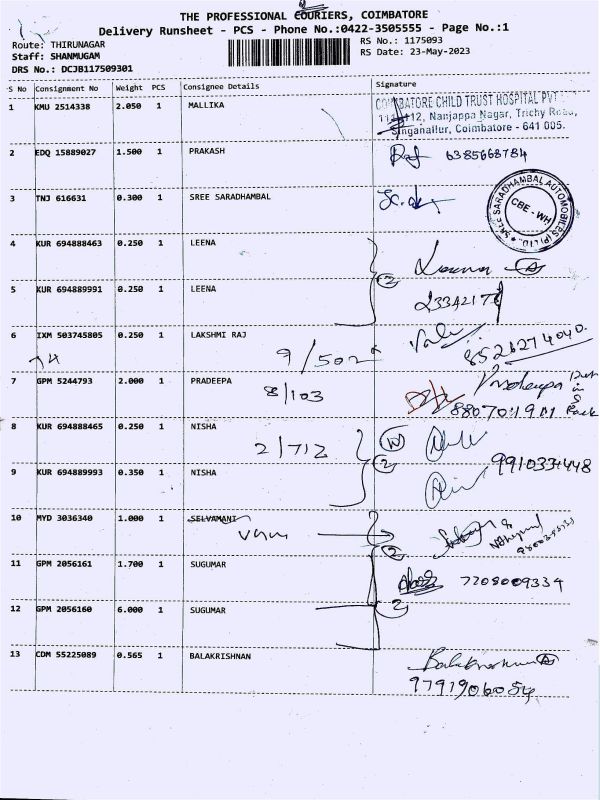 THE PROFESSIONAL COURIERS, COIMBATORE
Delivery Runsheet - PCS - Phone No.:0422-3505555 - Page No.:1
Route: THIRUNAGAR RS No.: 1175093
Staff: SHANMUGAM RS Date: 23-May-2023
DRS No.: DCJB117509301
S No Consignment No Weight PCS Consignee Details Signature
1 KMU 2514338 2.050 1 MALLIKA
COIMBATORE CHILD TRUST HOSPITAL PVT
Nanjappa Nagar, Trichy Road,
Singanallur, Coimbatore - 641 005.
2 EDQ 15889027 1.500 1 PRAKASH 6385668784
3 TNJ 616631 0.300 1 SREE SARADHAMBAL
SREE SARADHAMBAL AUTOMOBILES (P) LTD.
CBE - WH
4 KUR 694888463 0.250 1 LEENA
2
5 KUR 694889991 0.250 1 LEENA
6 IXM 503745805 0.250 1 LAKSHMI RAJ
9/502 8526274040
7 GPM 5244793 2.000 1 PRADEEPA Pradeepa
8/103
8 KUR 694888465 0.250 1 NISHA
2/712 2 9910331448
9 KUR 694889993 0.350 1 NISHA
10 MYD 3036340 1.000 1 SELVAMANI
2
11 GPM 2056161 1.700 1 SUGUMAR 7208009334
12 GPM 2056160 6.000 1 SUGUMAR
2
13 CDM 55225089 0.565 1 BALAKRISHNAN Balakrishnan
9791906054